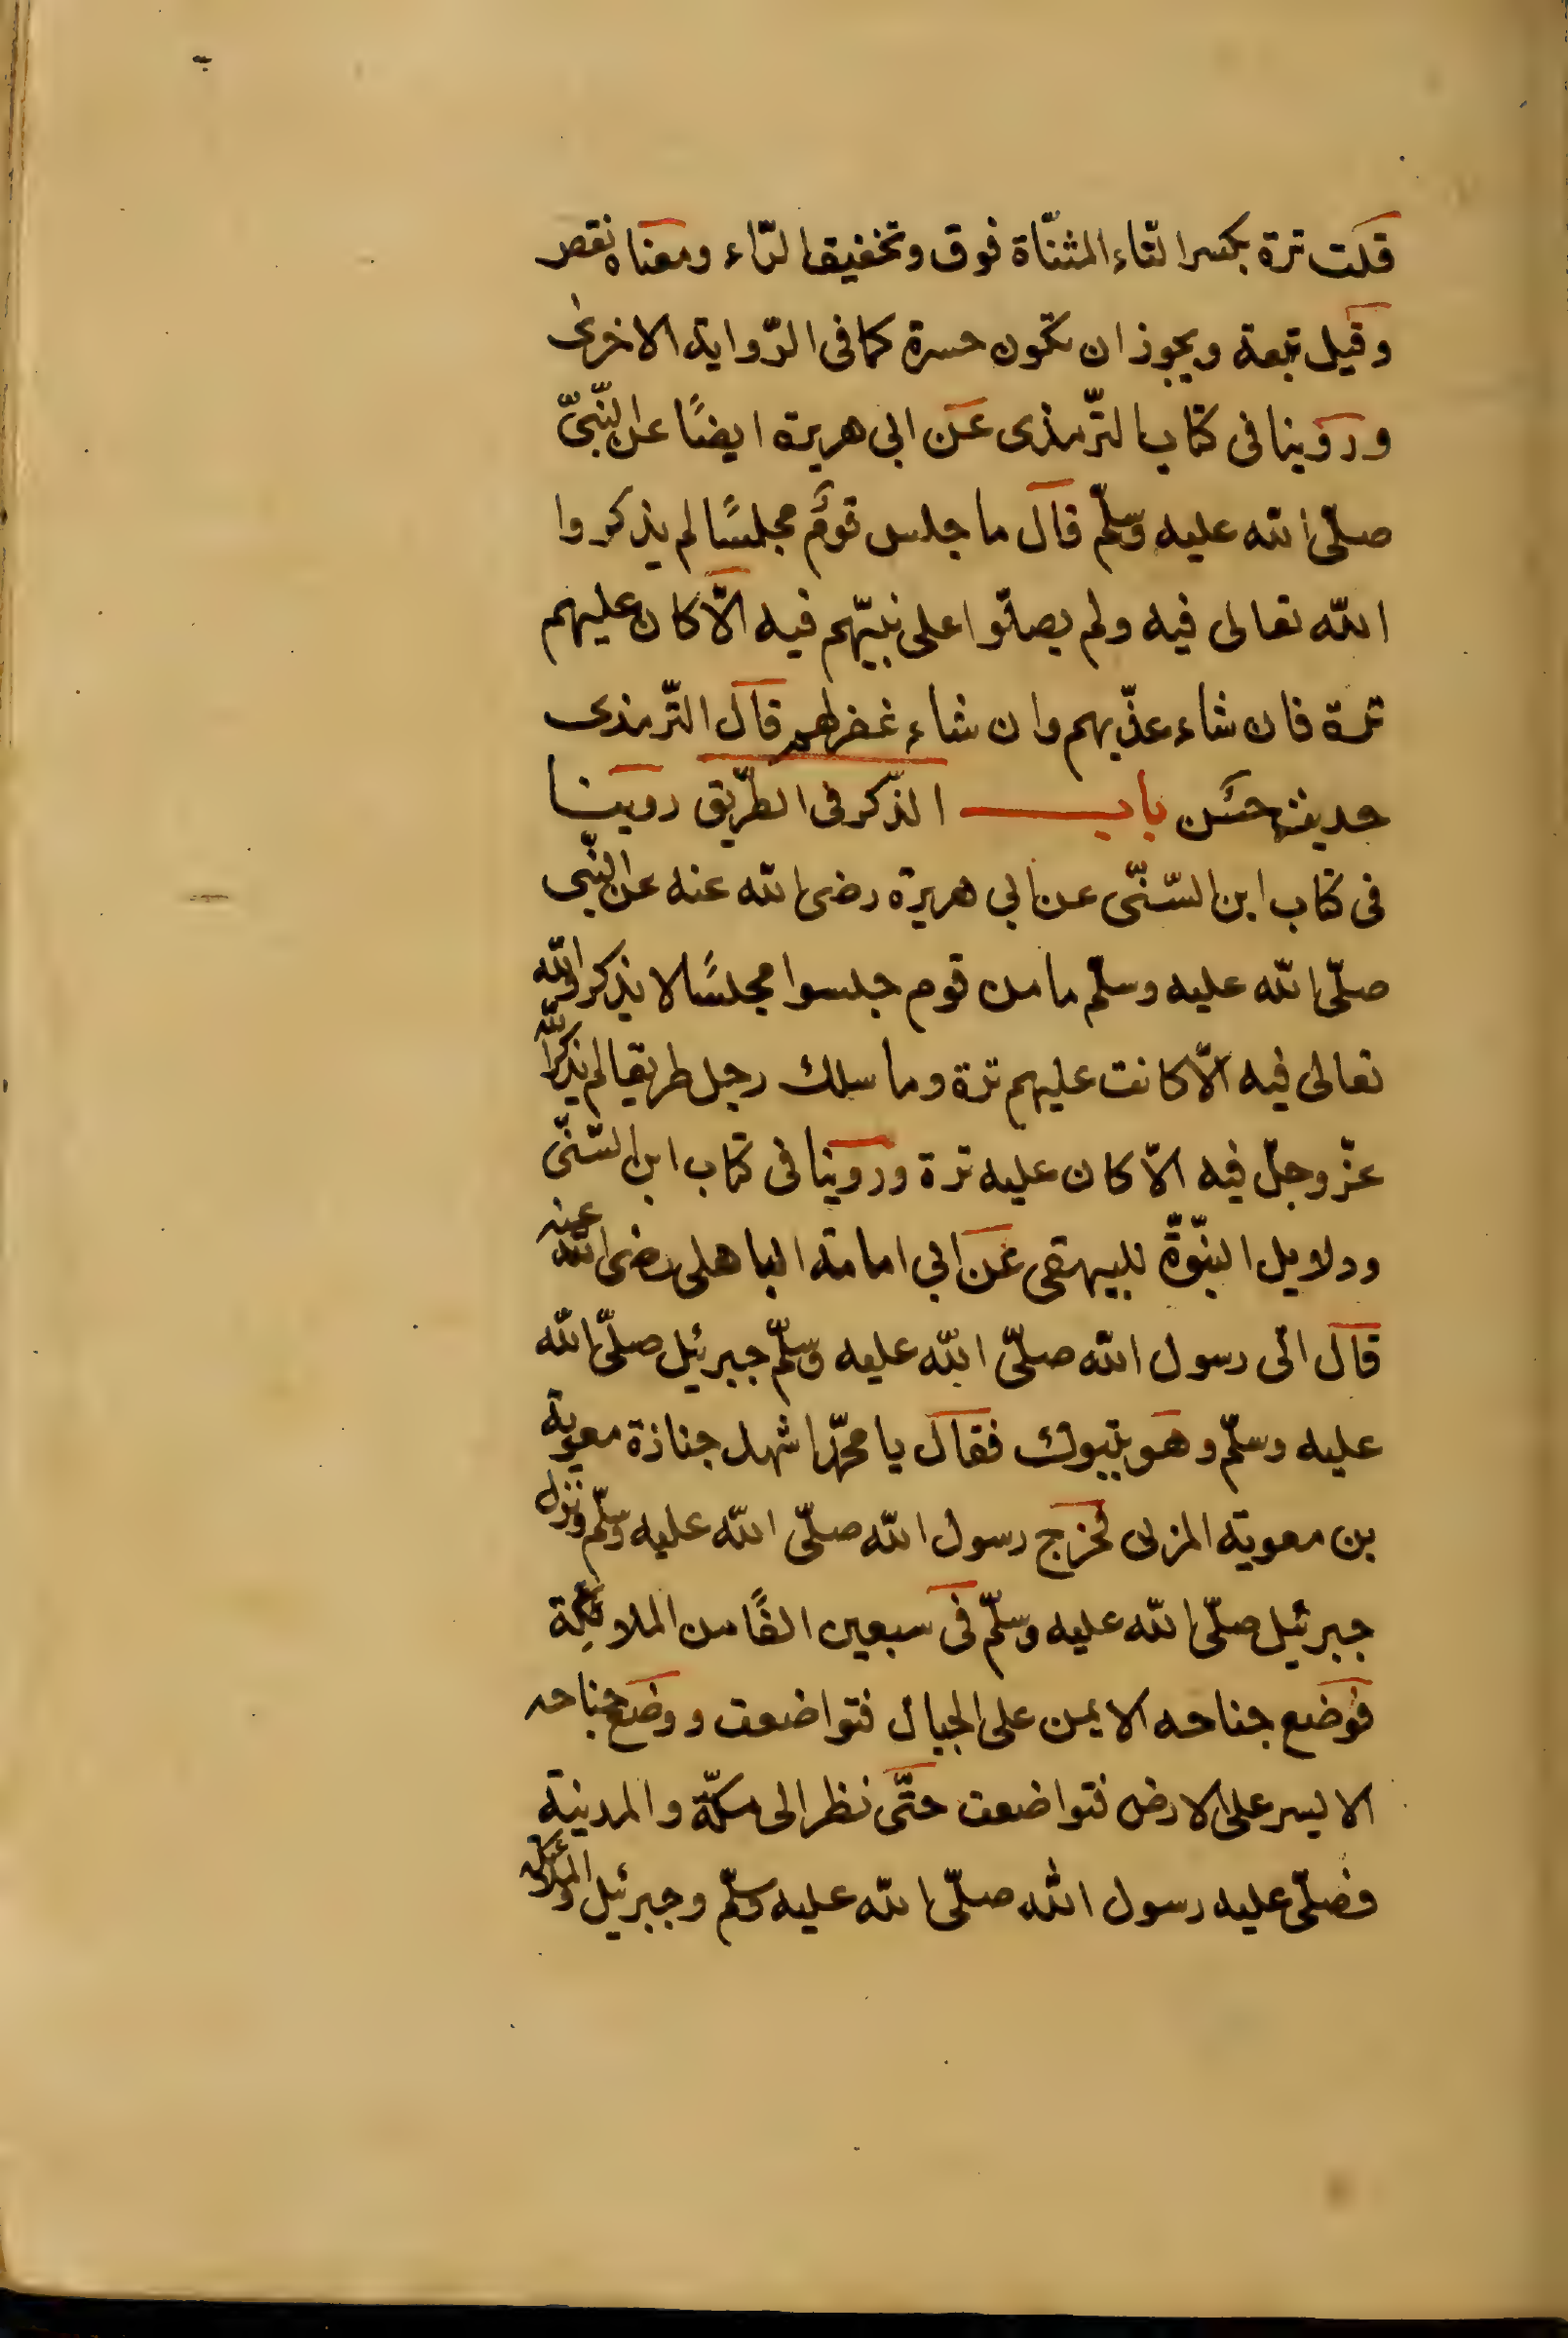 قلت ترة بكسر التاء المثنّاة فوق وتخفيف الرّاء ومعناه نقص
وقيل تبعة ويجوز ان تكون حسرة كما فى الرّواية الاخرى
وروينا فى كتاب الترّمذى عن ابى هريرة ايضًا عن النّبىّ
صلّى الله عليه وسلّم قال ما جلس قومٌ مجلسًا لم يذكروا
الله تعالى فيه ولم يصلّوا على نبيّهم فيه الّا كان عليهم
ترة فان شاء عذّبهم وان شاء غفر لهم قال الترّمذى
حديث حسن باب الذّكر فى الطّريق روينا
فى كتاب ابن السّنّى عن ابى هريرة رضى الله عنه عن النّبى
صلّى الله عليه وسلّم ما من قوم جلسوا مجلسًا لا يذكروا الله
تعالى فيه الّا كانت عليهم ترة وما سلك رجل طريقا لم يذكر الله
عزّ وجلّ فيه الّا كان عليه ترة وروينا فى كتاب ابن السّنّى
ودلايل النبّوّة للبيهقى عن ابى امامة الباهلى رضى الله عنه
قال اتى رسول الله صلّى الله عليه وسلّم جبرئيل صلّى الله
عليه وسلّم وهو بتبوك فقال يا محمّد اشهد جنازة معوية
بن معوية المزنى فخرج رسول الله صلّى الله عليه وسلّم ونزل
جبرئيل صلّى الله عليه وسلّم فى سبعين الفًا من الملائكة
فوضع جناحه الايمن على الجبال فتواضعت ووضع جناحه
الايسر على الارض فتواضعت حتّى نظر الى مكّة والمدينة
فصلّى عليه رسول الله صلّى الله عليه وسلّم وجبرئيل والملائكة